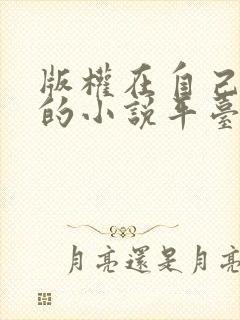 版權在自己
的小說平臺
月亮還是月亮